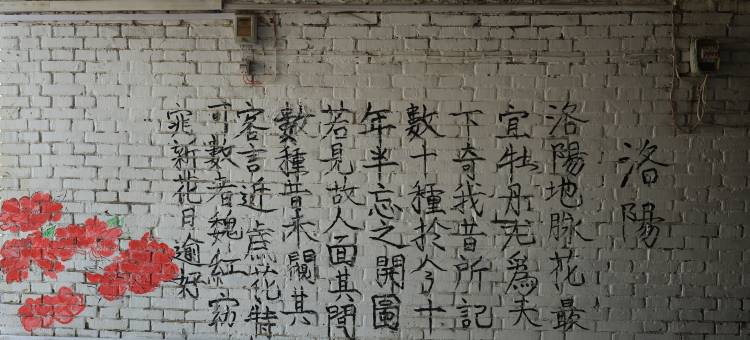 洛陽
洛陽地脉花最
宜牡丹尤爲天
下奇我昔所記
數十種於今十
年半忘之開圖
若見故人面其間
數種昔未闚其
客言近歲花特
可數者魏紅窈
窕新花日逾好